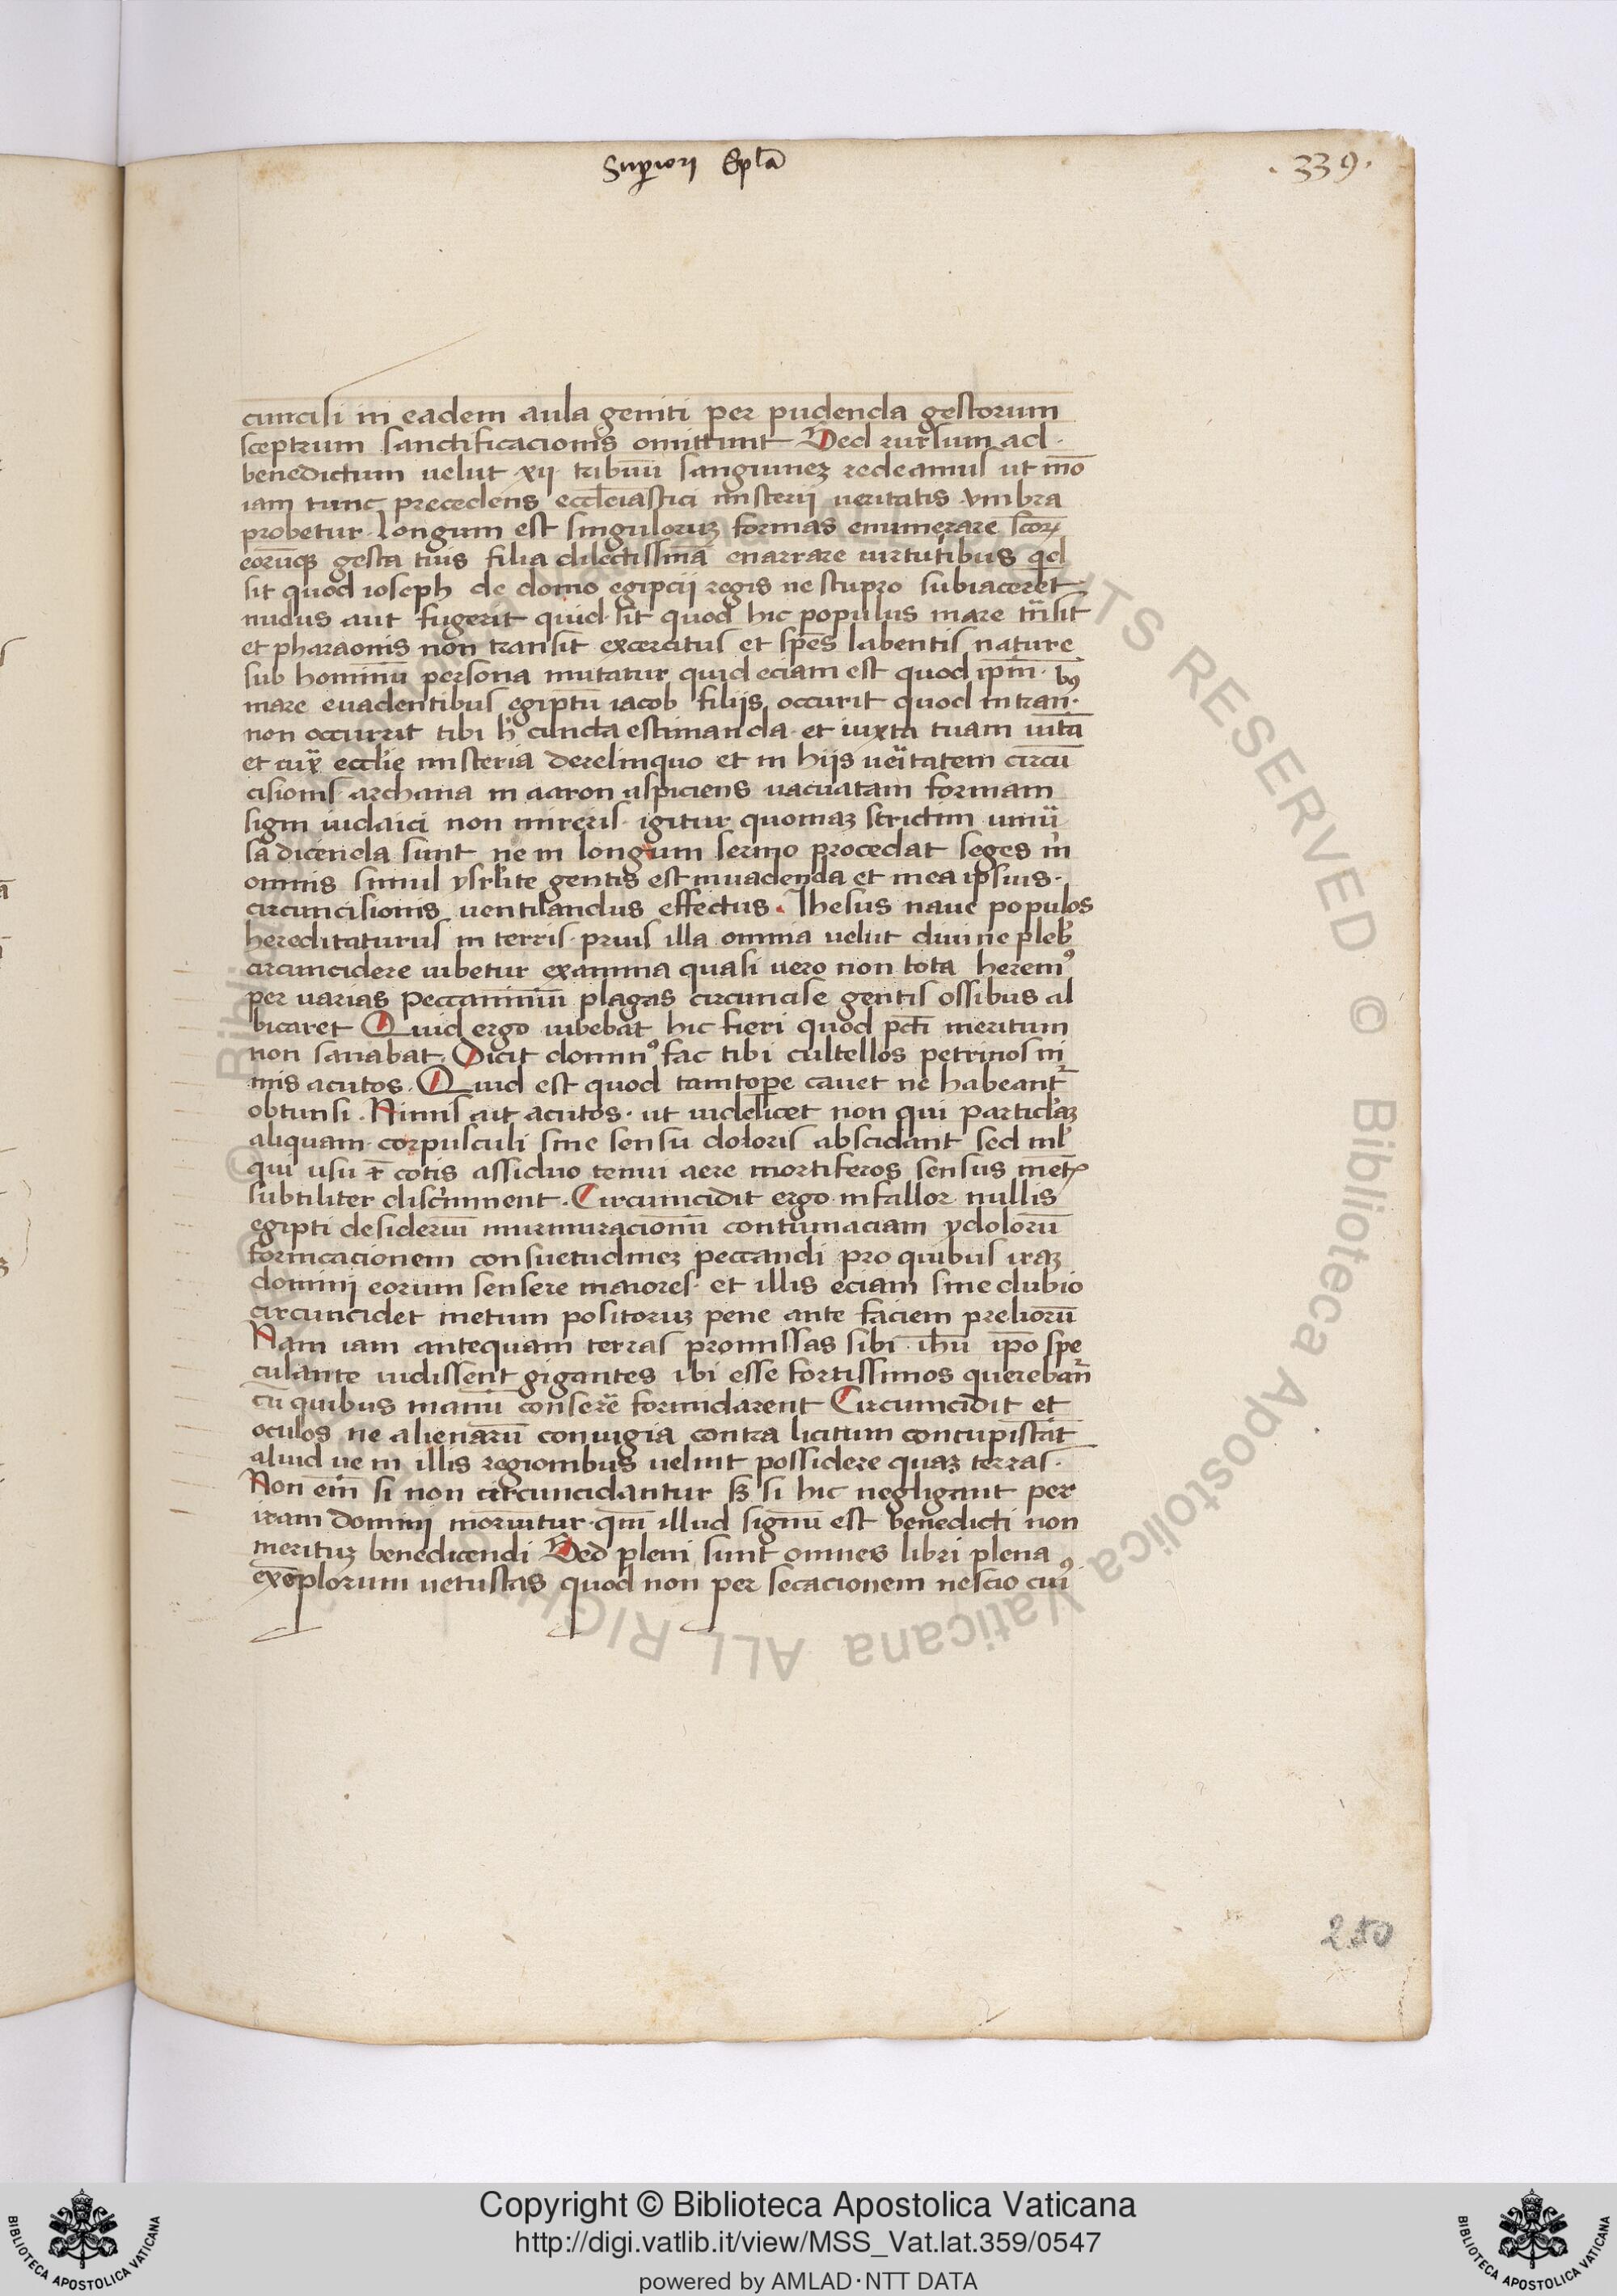 Sup̄iori Ep̄la
. 339 .
cuncisi in eadem aula geniti per pudenda gestorum
sceptrum sanctificacionis omittunt Sed rursum ad
benedictum uelut xii tribuū sanguinez redeamus ut mō
iam tunc precedens eccleiastici misterii ueritatis vmbra
probetur longum est singuloruz formas enumerare
gesta tuis filia dilectissima enarrare uirtutibus qd
sit quod ioseph de domo egipcii regis ne stupro subiaceret
nudus aut fugerit quid sit quod hic populus mare
et pharaonis non transit excercitus et sp̄es labentis nature
sub hominū persona mutatur quid eciam est quod ip̄m
mare euadentibus egiptū iacob filijs occurit quod intran
non occurrit tibi h̄ cuncta estimanda et iuxta tuam uitā
et misteria derelinquo et in hijs ueritatem circū
cisionis archana in aaron aspiciens uacuatam formam
signi iudaici non mireris igitur quoniaz strictim
sa dicenda sunt ne in longum sermo procedat seges
omnis simul gentis est inuadenda et mea ipsius
circuncisionis uentilandus effectus. Ihesus naue populos
hereditaturus in terris prius illa omnia uelut diuine pleb
circuncidere iubetur examina quasi uero non tota herem⁹
per uarias peccaminū plagas circuncise gentis ossibus al
bicaret Quid ergo iubebat hic fieri quod pcti meritum
non sanabat. Dicit domin⁹ fac tibi cultellos petrinos ni
mis acutos. Quid est quod tamtope cauet ne habeant
obtunsi. Nimis ait acutos. ut uidelicet non qui
aliquam corpusculi sine sensu doloris abscidant sed
qui usu cotis assiduo tenui aere mortiferos sensus
subtiliter discrimnent. Circumcidit ergo
egipti desideriū murmuracionū contumaciam ydolorū
fornicacionem consuetudinez peccandi pro quibus iraz
domini eorum sensere maiores et illis eciam sine dubio
circuncidet metum positoruz pene ante faciem preliorū
Nam iam antequam terras promissas sibi ihū ip̄o spe
culante uidissent gigantes ibi esse fortissimos quereban
cū quibus manū conserē formidarent Circumcidit et
oculos ne alienarū coniugia contra licitum
aliud ue in illis regionibus uelint possidere quaz terras
Non em̄ si non circuncidantur si hic negligant per
iram domini illud signū est benedicti non
merituz benedicendi Sed pleni sunt omnes libri plena
exēplorum uetustas quod non per secacionem nescio cui⁹
250
Copyright © Biblioteca Apostolica Vaticana
http://digi.vatlib.it/view/MSS_Vat.lat.359/0547
powered by AMLAD·NTT DATA
BIBLIOTECA APOSTOLICA VATICANA
BIBLIOTECA APOSTOLICA VATICANA
© Biblioteca Apostolica Vaticana ALL RIGHTS RESERVED